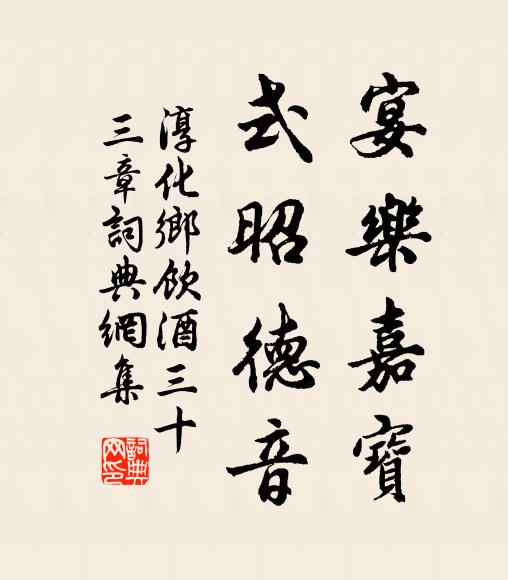 宴樂嘉寶
式昭德音
淳化鄉飲酒三十
三章詞典網集
詞典网印